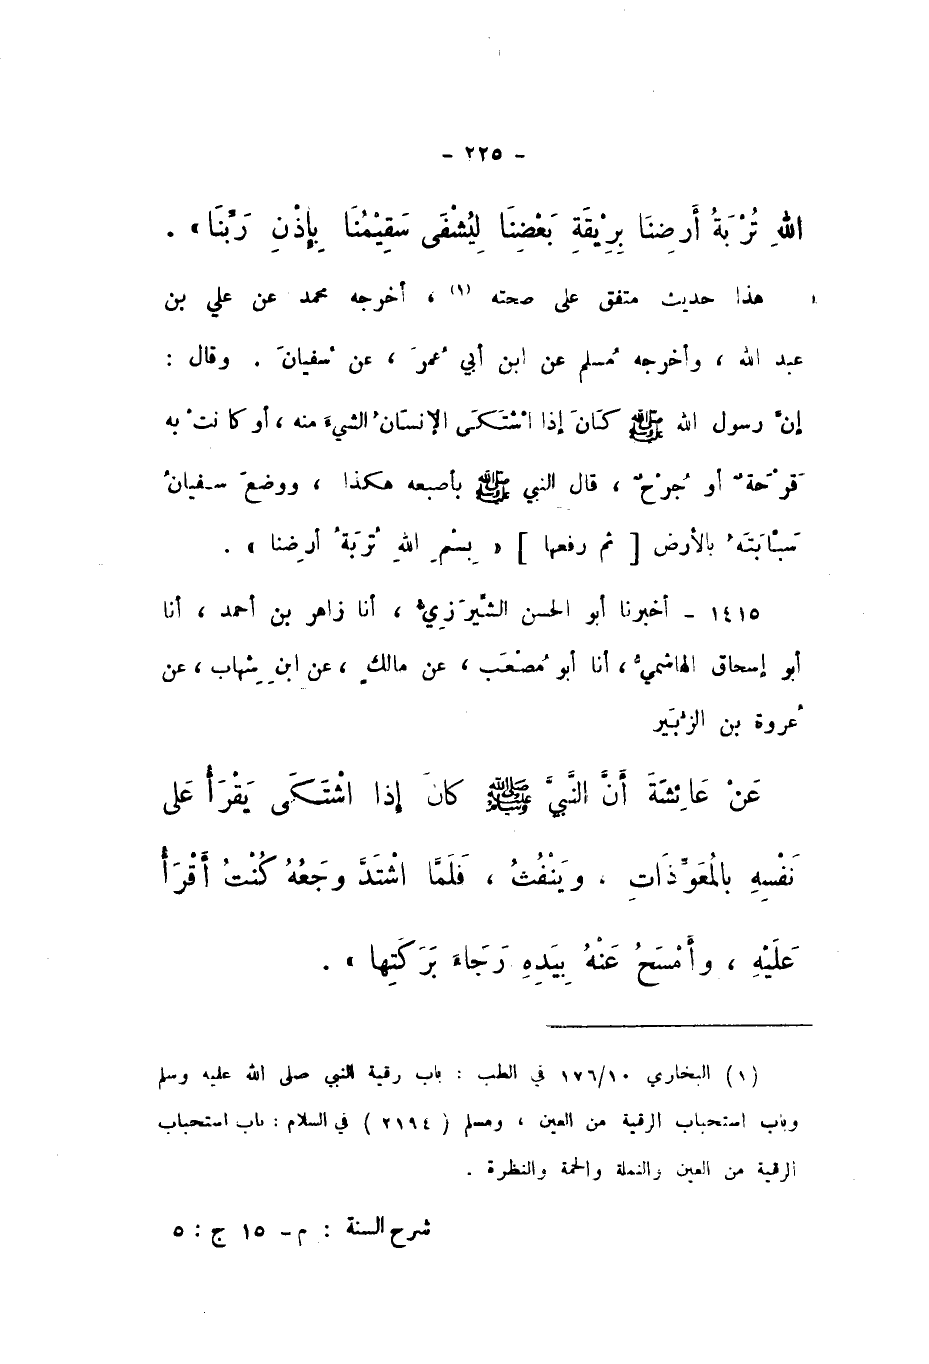 - ٢٢٥ -
اللهِ تُرْبَةُ أَرضِنَا بِرِيْقَةِ بَعْضِنَا لِيُشْفَى سَقِيْمُنَا بِإِذْنِ رَبِّنَا » .
هذا حديث متفق على صحته (١) ، أخرجه محمد عن علي بن
عبد الله ، وأخرجه مُسلم عن ابن أبي عُمرَ ، عن سُفيانَ . وقال :
إنَّ رسول الله ﷺ كَانَ إذا اشْتَكَى الإنسَانُ الشيءَ منه ، أو كانتْ به
قَرْحَةٌ أو جُرْحٌ ، قال النبي ﷺ بأصبعه هكذا ، ووضعَ سفيانُ
سَبَّابَتَهُ بالأرض [ ثم رفعها ] « بِسْمِ اللهِ تُربَةُ أرضِنا » .
١٤١٥ - أخبرنا أبو الحسن الشِّيرَزيُّ ، أنا زاهر بن أحمد ، أنا
أبو إسحاق الهاشميُّ ، أنا أبو مُصْعَب ، عن مالكٍ ، عن ابنِ شِهاب ، عن
عُروة بن الزُّبَير
عَنْ عَائِشَةَ أَنَّ النَّبيَّ ﷺ كانَ إذا اشْتَكَى يَقْرَأُ عَلى
نَفْسِهِ بالمُعَوِّذَاتِ ، ويَنْفُثُ ، فَلَمَّا اشْتَدَّ وجَعُهُ كُنْتُ أَقْرَأُ
عَلَيْهِ ، وأَمْسَحُ عَنْهُ بِيَدِهِ رَجَاءَ بَرَكَتِها » .
(١) البخاري ١٧٦/١٠ في الطب : باب رقية النبي صلى الله عليه وسلم
وباب استحباب الرقية من العين ، ومسلم ( ٢١٩٤ ) في السلام : باب استحباب
الرقية من العين والنملة والحمة والنظرة .
شرح السنة : م - ١٥ ج : ٥